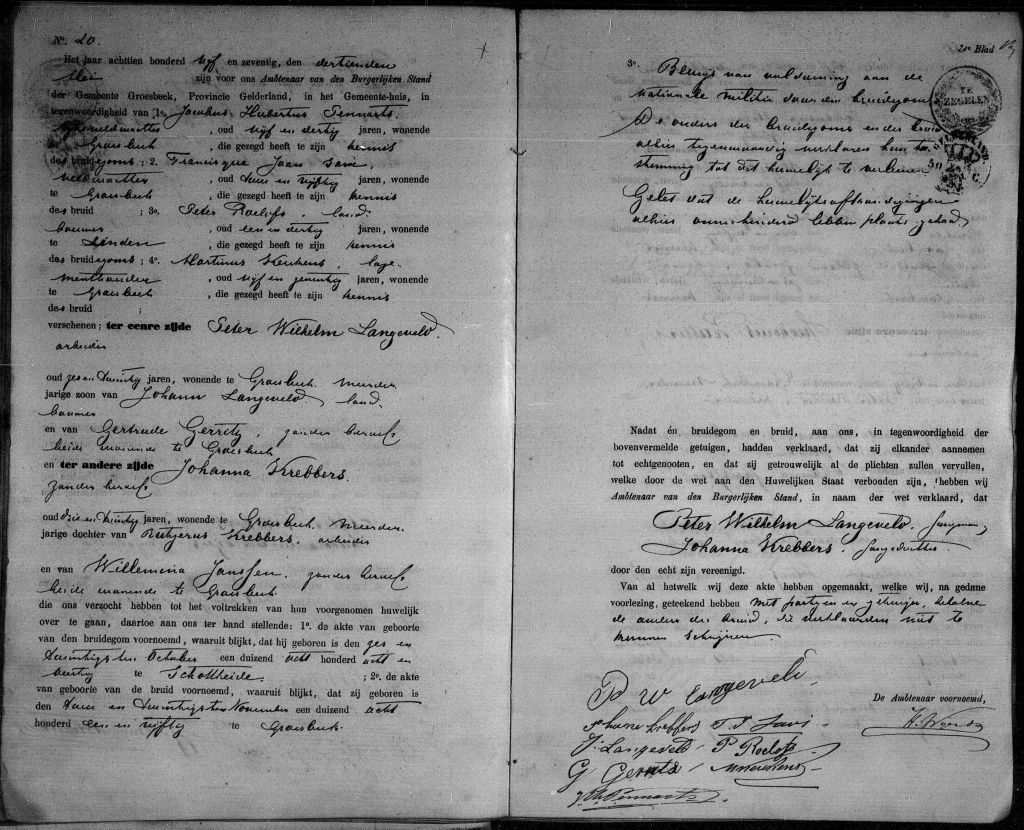 No. 20.
Het jaar achttien honderd vijf en zeventig, den dertienden
Mei zijn voor ons Ambtenaar van den Burgerlijken Stand
der Gemeente Groesbeek, Provincie Gelderland, in het Gemeente-huis, in
tegenwoordigheid van 1o. Jacobus Hubertus Pennarts
, oud vijf en dertig jaren, wonende
te Groesbeek , die gezegd heeft te zijn kennis
des bruidegoms; 2.
veldwachter , oud twee en vijftig jaren, wonende
te Groesbeek , die gezegd heeft te zijn kennis
der bruid ; 3o. Peter Roelofs, land-
bouwer , oud een en dertig jaren, wonende
te Linden , die gezegd heeft te zijn kennis
des bruidegoms; 4o. Martinus Keukens,
, oud vijf en jaren, wonende
te Groesbeek , die gezegd heeft te zijn kennis
der bruid ;
verschenen; ter eenre zijde Peter Wilhelm Langeveld.
arbeider
oud zes en twintig jaren, wonende te Groesbeek, meerder-
jarige zoon van Johann Langeveld land-
bouwer
en van Gertrude Gerritz, zonder beroep
beide wonende te Groesbeek
en ter andere zijde Johanna Krebbers.
zonder beroep
oud drie en twintig jaren, wonende te Groesbeek, meerder-
jarige dochter van Rutgerus Krebbers, arbeider
en van Willemina Janssen, zonder beroep
beide wonende te Groesbeek
die ons verzocht hebben tot het voltrekken van hun voorgenomen huwelijk
over te gaan, daartoe aan ons ter hand stellende: 1o. de akte van geboorte
van den bruidegom voornoemd, waaruit blijkt, dat hij geboren is den zes en
twintigsten October een duizend acht honderd acht en
veertig te Schottheide ; 2o. de akte
van geboorte van de bruid voornoemd, waaruit blijkt, dat zij geboren is
den twee en twintigsten November een duizend acht
honderd een en vijftig te Groesbeek
2e Blad
3o. Bewijs van voldoening aan de
nationale militie door den bruidegom
De ouders des bruidegoms en der bruid
alhier tegenwoordig verklaren hun toe-
stemming tot dit huwelijk te verleenen
Gelet dat de huwelijksafkondigingen
alhier onverhinderd hebben plaats gehad
TE ZEGELEN
GELDERLAND
50 C.
Nadat én bruidegom en bruid, aan ons, in tegenwoordigheid der
bovenvermelde getuigen, hadden verklaard, dat zij elkander aannemen
tot echtgenooten, en dat zij getrouwelijk al de plichten zullen vervullen,
welke door de wet aan den Huwelijken Staat verbonden zijn, hebben wij
Ambtenaar van den Burgerlijken Stand, in naam der wet verklaard, dat
Peter Wilhelm Langeveld, jongman
Johanna Krebbers, jongedochter
door den echt zijn vereenigd.
Van al hetwelk wij deze akte hebben opgemaakt, welke wij, na gedane
voorlezing, geteekend hebben met partijen en getuigen, behalve
de ouders der bruid, die verklaarden niet te
kunnen schrijven.
P W Langeveld
De Ambtenaar voornoemd,
J. Langeveld P. Roelofs
G Gerritz